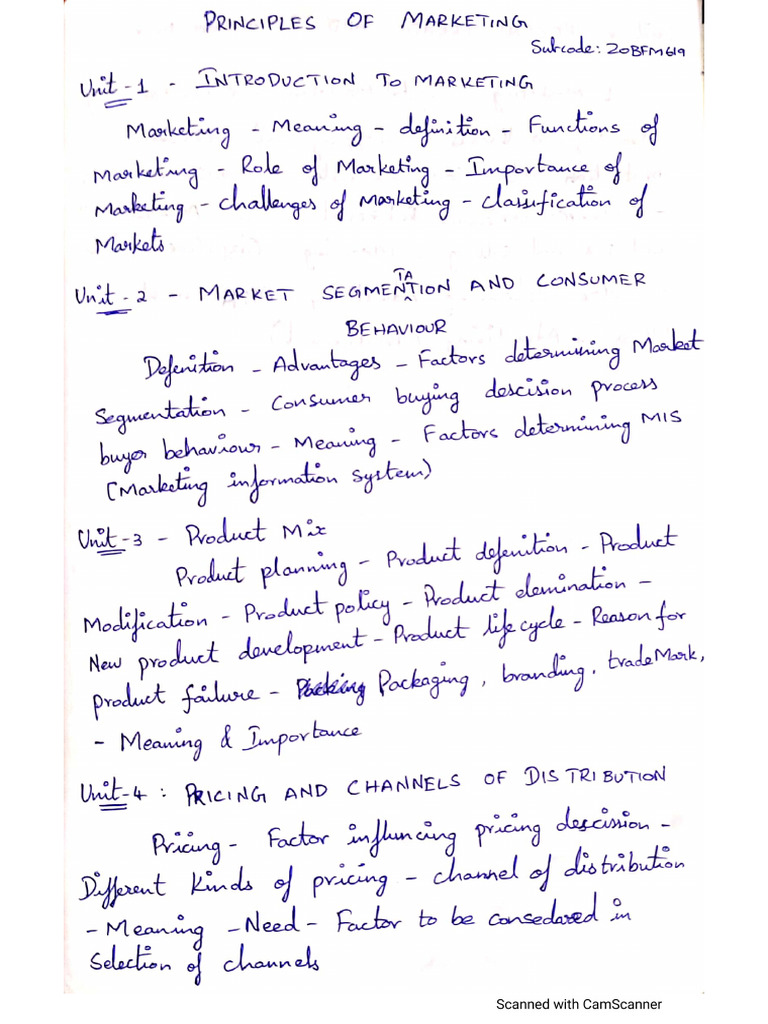 PRINCIPLES OF MARKETING
Subcode: 20BFM619
Unit-1 - INTRODUCTION TO MARKETING
Marketing - Meaning - definition - Functions of
Marketing - Role of Marketing - Importance of
Marketing - challenges of Marketing - classification of
Markets
Unit-2 - MARKET SEGMENTATION AND CONSUMER
BEHAVIOUR
Defenition - Advantages - Factors determining Market
Segmentation - Consumer buying descision process
buyer behaviour - Meaning - Factors determining MIS
(Marketing information system)
Unit-3 - Product Mix
Product planning - Product defenition - Product
Modification - Product policy - Product elemination -
New product development - Product life cycle - Reason for
product failure - Packaging, branding, trade Mark,
- Meaning & Importance
Unit-4 : PRICING AND CHANNELS OF DISTRIBUTION
Pricing - Factor influncing pricing descission -
Different kinds of pricing - channel of distribution
- Meaning - Need - Factor to be consedared in
Selection of channels
Scanned with CamScanner